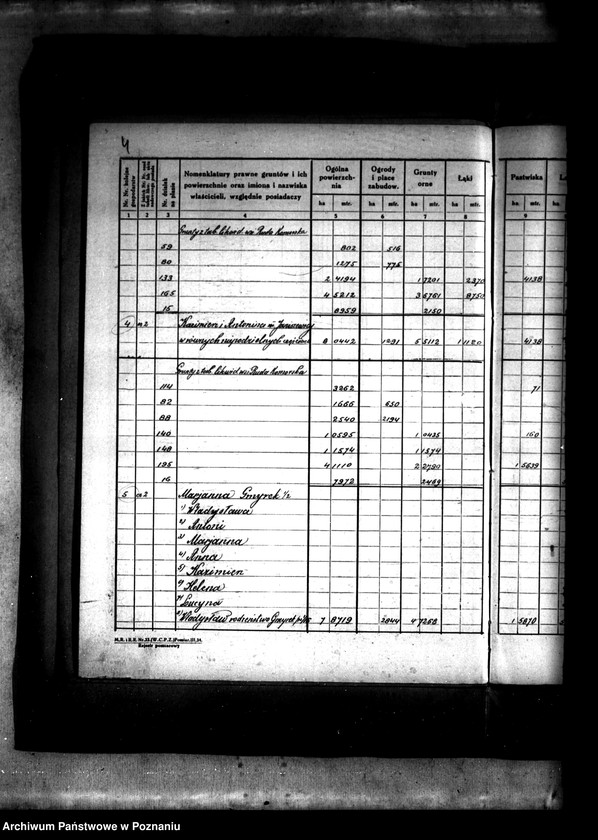 4
Nr. Nr. kolejne gospodarstw
Nr. działek na planie
Nomenklatury prawne gruntów i ich powierzchnie oraz imiona i nazwiska właścicieli, względnie posiadaczy
Ogólna powierzchnia
Ogrody i place zabudow.
Grunty orne
Łąki
Pastwiska
ha mtr. ha mtr. ha mtr. ha mtr. ha mtr.
1 2 3 4 5 6 7 8 9
59 802 516
80 1275 775
133 2 4194 1 7201 2370 4138
165 4 5212 3 5761 8750
15 8959 2150
4 a2 Kazimierz i Antonina
w równych niepodzielnych częściach 8 0442 1291 5 5112 1 1120 4138
114 3262 71
82 1666 650
88 2540 2194
140 1 0595 1 0435 160
148 1 1574 1 1574
195 4 1110 2 2790 1 5639
16 7972 2469
5 a2 Marjanna Gmyrek 1/2
1) Władysława
2) Antoni
3) Marjanna
4) Anna
5) Kazimierz
6) Helena
7) Lucyna
8) Władysław rodzeństwo Gmyrek 7 8719 2844 4 7268 1 5870
Rejestr pomiarowy
Archiwum Państwowe w Poznaniu